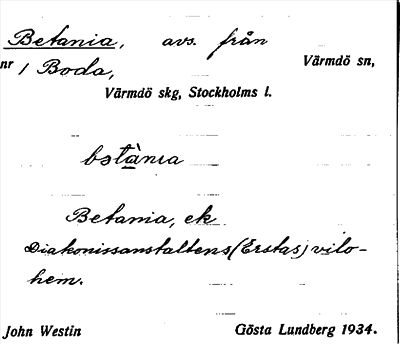 Betania, avs. från
Värmdö sn,
nr 1 Boda,
Värmdö skg, Stockholms l.
bɜtà̀nia
Betania, ek
Diakonissanstaltens (Erstas) vilo-
hem.
John Westin
Gösta Lundberg 1934.